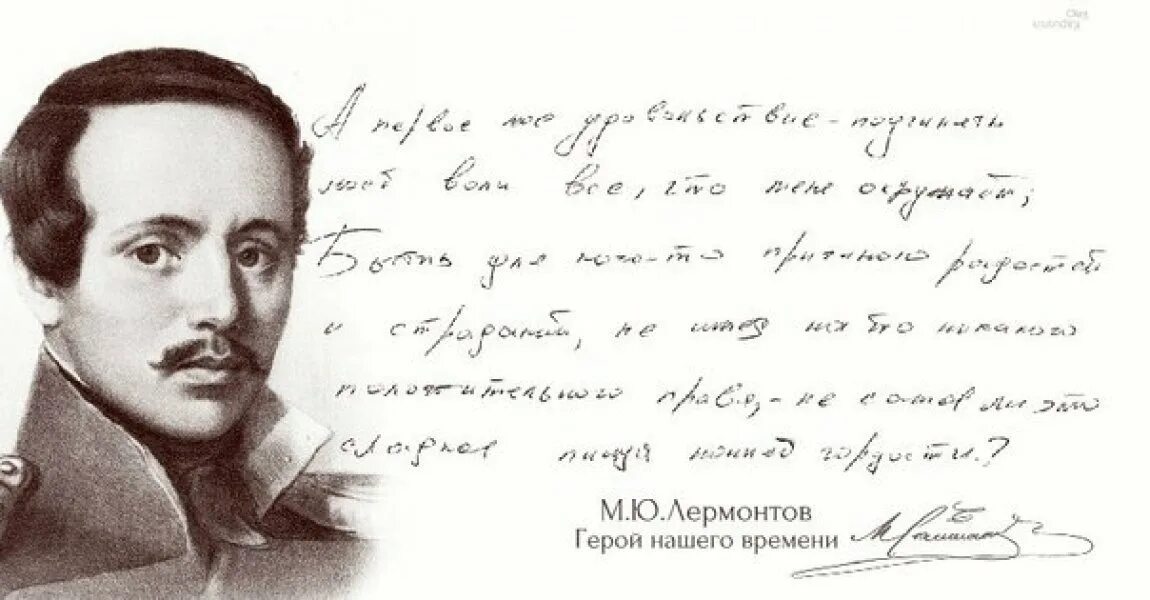 А первое мое удовольствие - подчинять
моей воле все, что меня окружает;
Быть для кого-то причиною радостей
и страданий, не имея на то никакого
положительного права, - не самая ли это
сладкая пища нашей гордости?
М.Ю.Лермонтов
Герой нашего времени